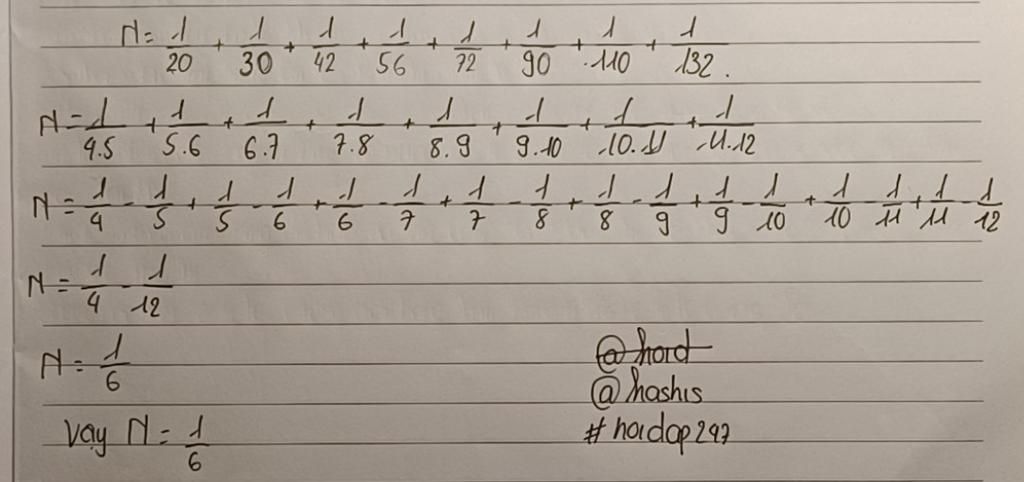 N = 1/20 + 1/30 + 1/42 + 1/56 + 1/72 + 1/90 + 1/110 + 1/132.
N = 1/4.5 + 1/5.6 + 1/6.7 + 1/7.8 + 1/8.9 + 1/9.10 + 1/10.11 + 1/11.12
N = 1/4 - 1/5 + 1/5 - 1/6 + 1/6 - 1/7 + 1/7 - 1/8 + 1/8 - 1/9 + 1/9 - 1/10 + 1/10 - 1/11 + 1/11 - 1/12
N = 1/4 - 1/12
N = 1/6
@hoid
@hoshis
Vay N = 1/6
#hoidap247